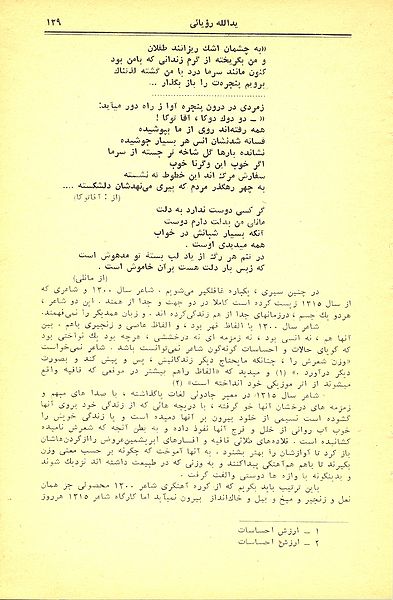 یدالله رؤیائی
۱۳۹
«به چشمان اشك ریزانند طفلان
و من بگریخته از گرم زندانی که بامن بود
کنون مانند سرما درد با من گشته لذتناك
برویم پنجره‌ت را باز بگذار ...
زمردی در درون پنجره آوا ز راه دور میاید:
«ـ دو دوك دوکا ، آقا توکا !
همه رفته‌اند روی از ما بپوشیده
فسانه شدنشان انس هر بسیار جوشیده
نشانده بارها گل شاخه تر جسته از سرما
اگر خوب این وگرنا خوب
سفارش مرگند این خطوط ته نشسته
به چهر رهگذر مردم که پیری می‌نهدشان دلشکسته ....
(از : آقاتوکا)
گر کسی دوست ندارد به دلت
مانلی من بدلت دارم دوست
آنکه بسیار شبانش در خواب
همه میدیدی اوست .
در تنم هر رگ از یاد لب بسته تو مدهوش است
که زبس بار دلت هست بران خاموش است .
(از مانلی)
در چنین سیری ، یکباره غافلگیر می‌شویم . شاعر سال ۱۳۰۰ و شاعری که
از سال ۱۳۱۵ زیست کرده است کاملا در دو جهت و جدا از همند . این دو شاعر ،
هردو یك جسم ، درزمانهای جدا از هم زندگی‌کرده اند . و زبان همدیگر را نمی‌فهمند.
شاعر سال ۱۳۰۰ با الفاظ قهر بود ، و الفاظ عاصی و زنجیری باهم . بین
آنها هم ، نه انسی بود ، نه زمزمه ای نه درخششی ، هرچه بود یك نواختی بود
که گویای حالات و احساسات گونه‌گون شاعر نمی‌توانست باشد . شاعر نمی‌خواست
«وزن شعرش را ، چنانکه مایحتاج دیگر زندگانیش ، پس و پیش کند و بصورت
دیگر درآورد .» (۱) و میدید که «الفاظ راهم بیشتر در موقعی که قافیه واقع
میشوند از اثر موزیکی خود انداخته است» (۲)
شاعر سال ۱۳۱۵، در معبر جادوئی لغات پاگذاشته ، با صدا های مبهم و
زمزمه های درخشان آنها خو گرفته ، با دریچه هائی که از زندگی خود بروی آنها
گشوده است نسیمی از خلود بیرون بر آنها دمیده است و پا زندگی خویش را
خوب آب روانی از خلل و فرج آنها نفوذ داده و به بطن آنچه که شعرش نامیده
کشانیده است . قلاده‌های طلائی قافیه و افسارهای ابریشمین‌عروض راازگردن‌هاشان
باز کرد تا آوازشان را بهتر بشنود . به آنها آموخت که چگونه بر حسب معنی وزن
بگیرند تا باهم هم‌آهنگی پیداکنند و به وزنی که در طبیعت داشته اند نزدیك شوند
و بدینگونه با واژه ها دوستی والفت گرفت .
باین ترتیب باید بگریم که از کوره آهنگری شاعر ۱۳۰۰ محصولی جز همان
نعل و زنجیر و میخ و بیل و خاك‌انداز بیرون نمیآید اما کارگاه شاعر ۱۳۱۵ هرروز
۱ – ارزش احساسات
۲ – ارزش احساسات